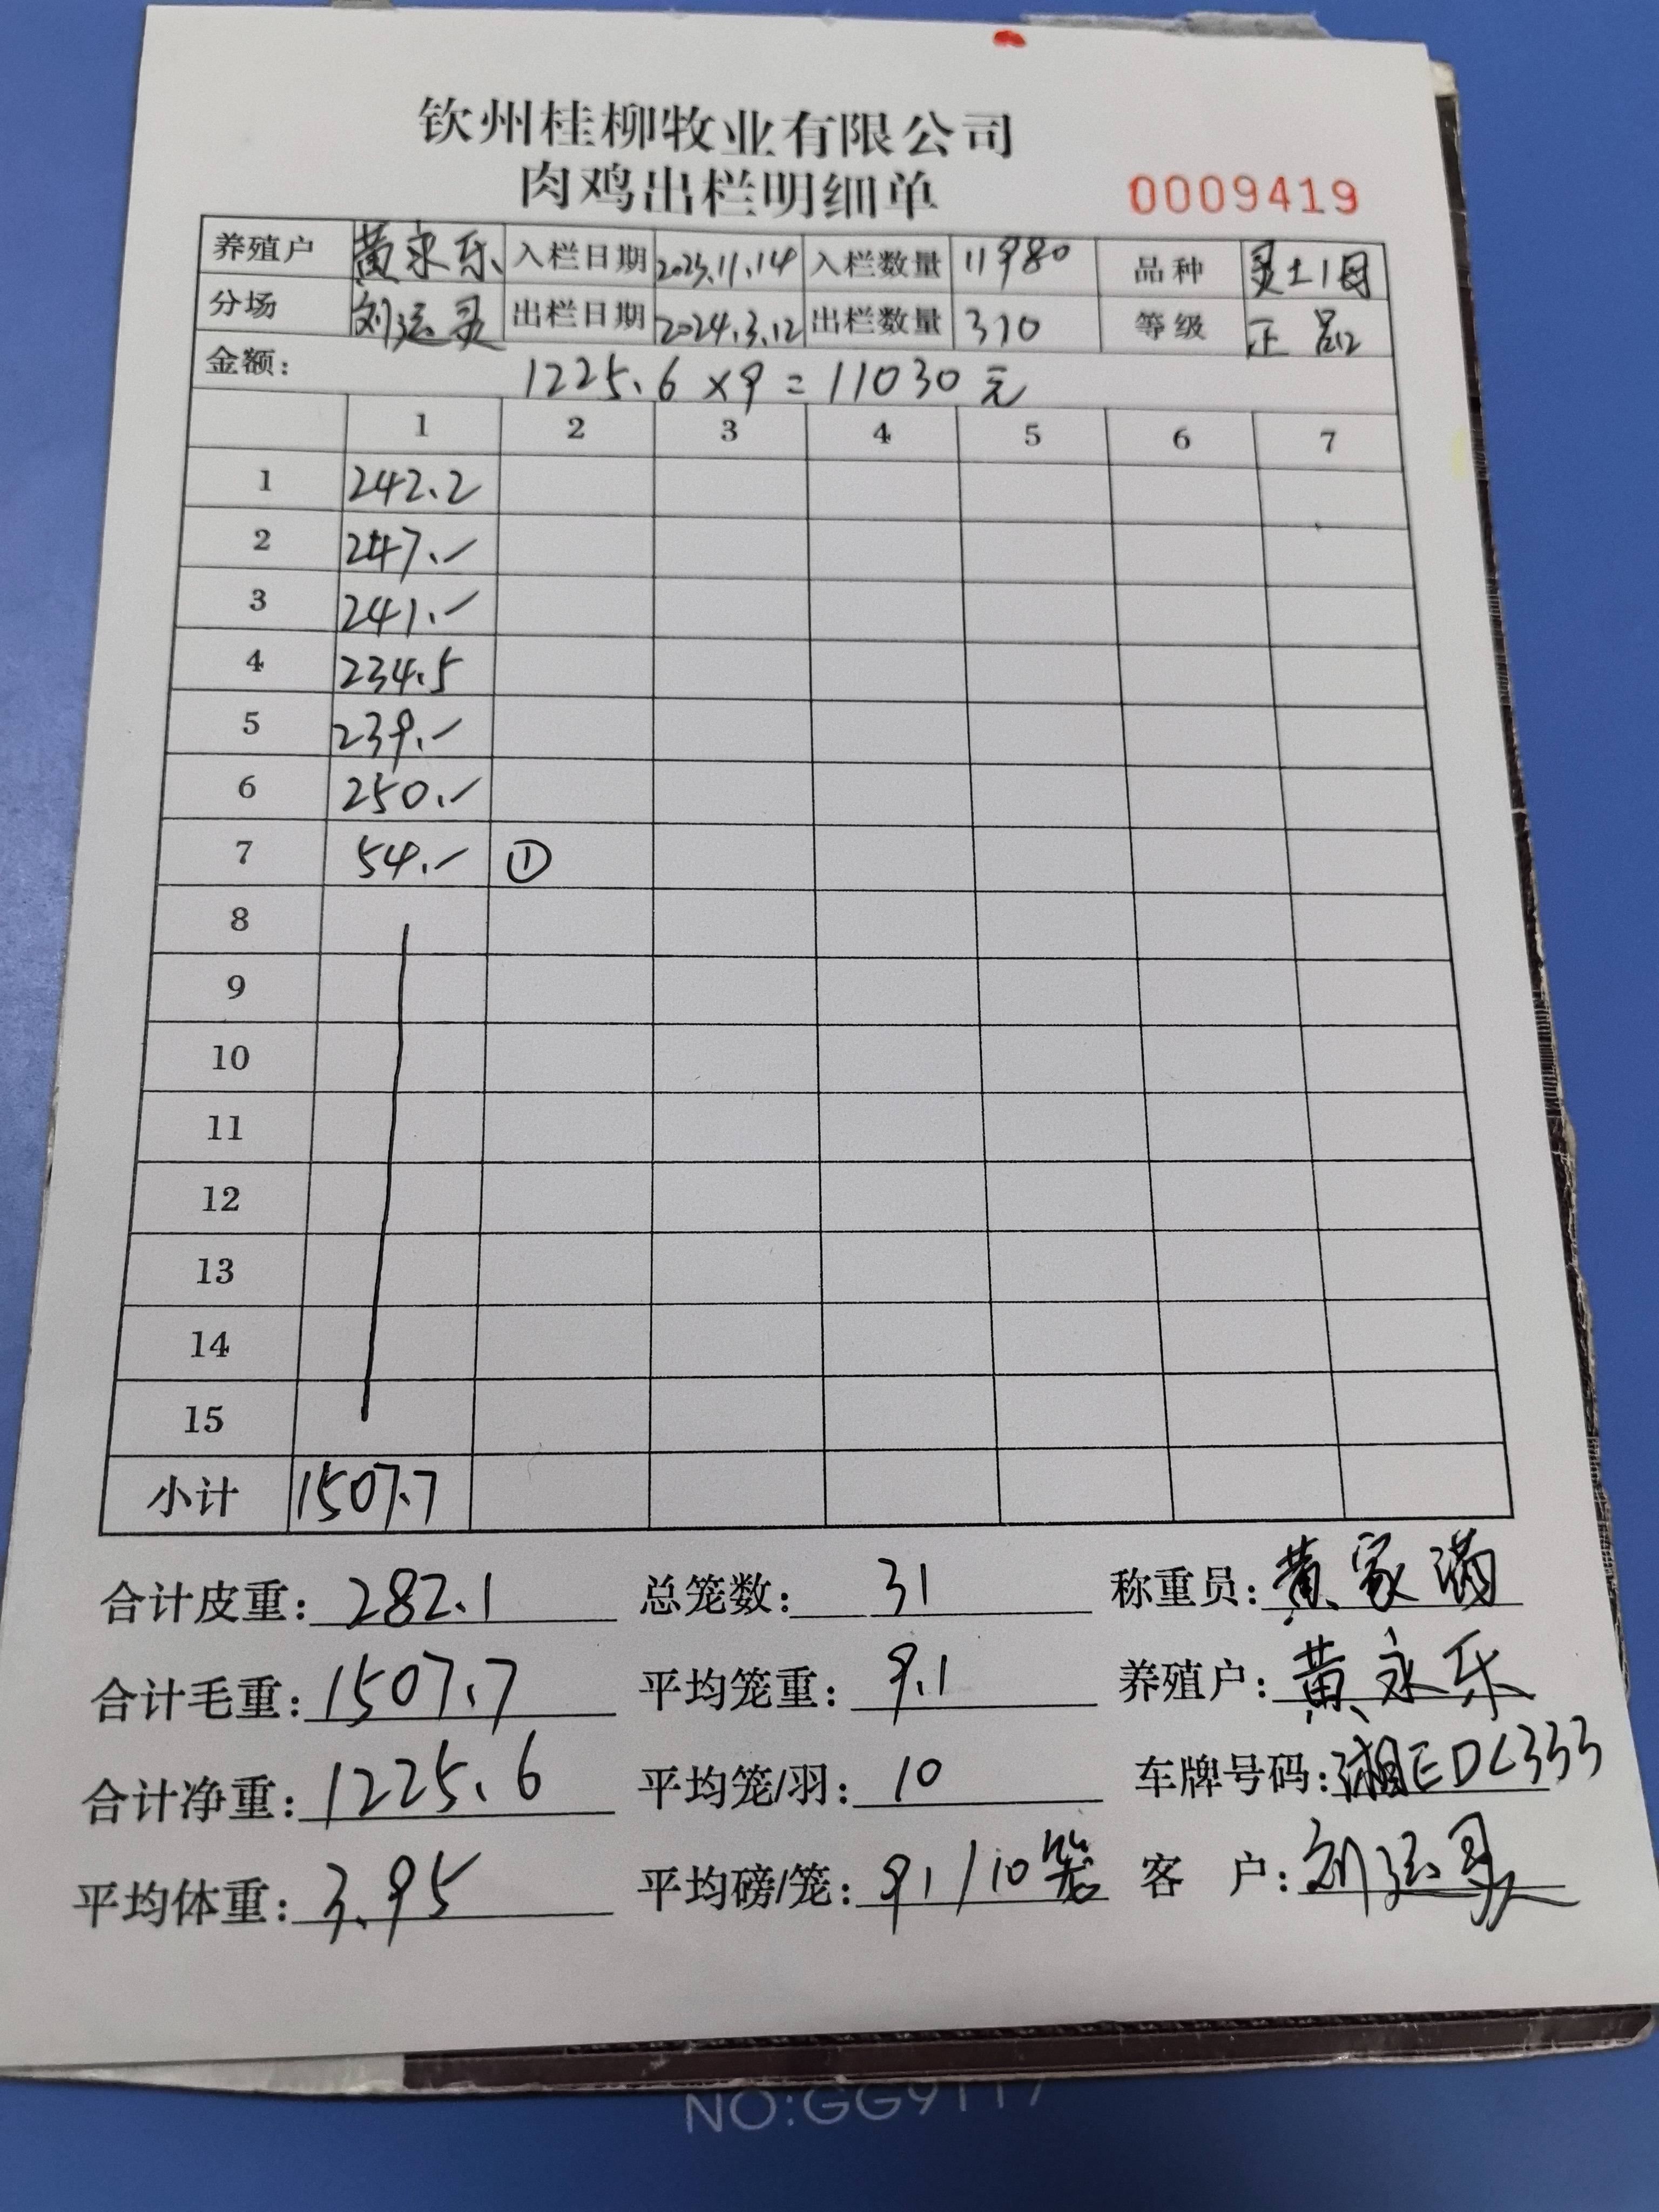 钦州桂柳牧业有限公司
肉鸡出栏明细单 0009419
养殖户 黄永乐 入栏日期 2023.11.14 入栏数量 11980 品种 灵土1母
分场 出栏日期 2024.3.12 出栏数量 310 等级 正品
金额: 1225.6×9=11030元
1 2 3 4 5 6 7
1 242.2
2 247.-
3 241.-
4 234.5
5 239.-
6 250.-
7 54.- ①
8
9
10
11
12
13
14
15
小计 1507.7
合计皮重: 282.1 总笼数: 31 称重员: 黄家满
合计毛重: 1507.7 平均笼重: 9.1 养殖户: 黄永乐
合计净重: 1225.6 平均笼/羽: 10 车牌号码: 湘EDL333
平均体重: 3.95 平均磅/笼: 91/10笼 客户:
NO:GG9117